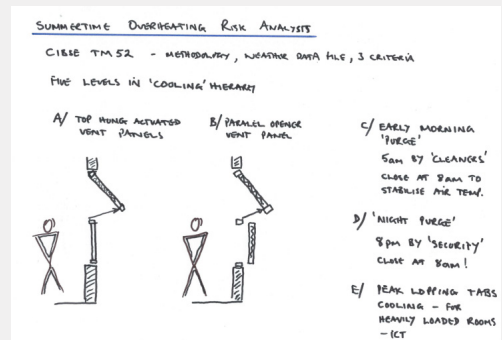 SUMMERTIME OVERHEATING RISK ANALYSIS
CIBSE TM52 - METHODOLOGY, WEATHER DATA FILE, 3 CRITERIA
FIVE LEVELS IN 'COOLING' HIERARY
A/ TOP HUNG ACTUATED
VENT PANELS
B/ PARALEL OPENER
VENT PANEL
C/ EARLY MORNING
'PURGE'
5am BY 'CLEANERS'
CLOSE AT 8am TO
STABILISE AIR TEMP.
D/ 'NIGHT PURGE'
8pm BY 'SECURITY'
CLOSE AT 8am!
E/ PEAK LOPPING TABS
COOLING - FOR
HEAVILY LOADED ROOMS
- ICT